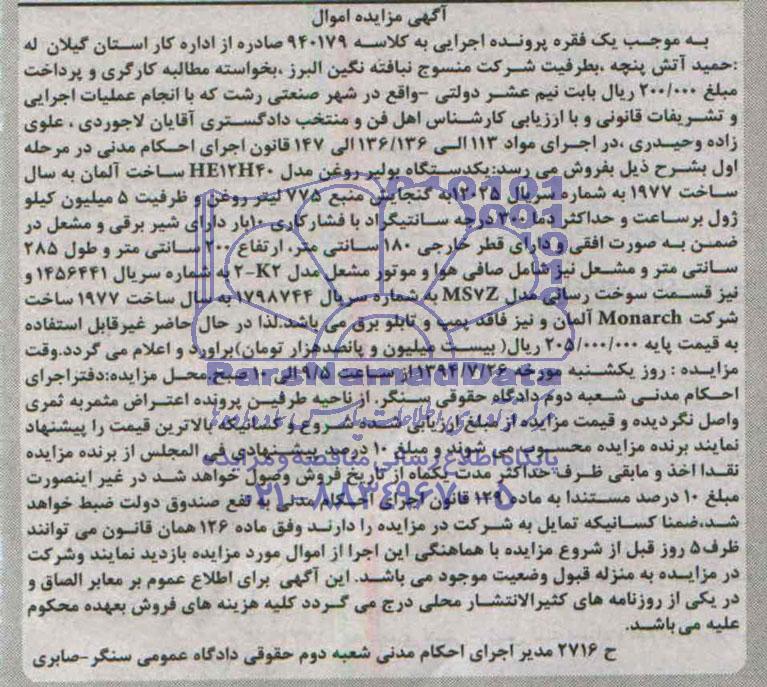 آگهی مزایده اموال
به موجب یک فقره پرونده اجرایی به کلاسه ۹۴۰۱۷۹ صادره از اداره کار استان گیلان له
:حمید آتش پنچه ،بطرفیت شرکت منسوج نبافته نگین البرز ،بخواسته مطالبه کارگری و پرداخت
مبلغ ۲۰۰/۰۰۰ ریال بابت نیم عشر دولتی -واقع در شهر صنعتی رشت که با انجام عملیات اجرایی
و تشریفات قانونی و با ارزیابی کارشناس اهل فن و منتخب دادگستری آقایان لاجوردی ، علوی
زاده وحیدری ،در اجرای مواد ۱۱۳ الی ۱۳۶/۱۳۶ الی ۱۴۷ قانون اجرای احکام مدنی در مرحله
اول بشرح ذیل بفروش می رسد:یکدستگاه بولیر روغن مدل HE۱۲H۴۰ ساخت آلمان به سال
ساخت ۱۹۷۷ به شماره سریال ۱۲۰۲۵به گنجایش منبع ۷۷۵ لیتر روغن و ظرفیت ۵ میلیون کیلو
ژول برساعت و حداکثر دما ۳۰۰ درجه سانتیگراد با فشارکاری ۱۰بار دارای شیر برقی و مشعل در
ضمن به صورت افقی و دارای قطر خارجی ۱۸۰ سانتی متر، ارتفاع ۲۰۰ سانتی متر و طول ۲۸۵
سانتی متر و مشعل نیز شامل صافی هوا و موتور مشعل مدل ۲-K۲ به شماره سریال ۱۴۵۶۴۴۱ و
نیز قسمت سوخت رسانی مدل MS۷Z به شماره سریال ۱۷۹۸۷۴۴ به سال ساخت ۱۹۷۷ ساخت
شرکت Monarch آلمان و نیز فاقد پمپ و تابلو برق می باشد.لذا در حال حاضر غیرقابل استفاده
به قیمت پایه ۲۰۵/۰۰۰/۰۰۰ ریال( بیست میلیون و پانصدهزار تومان)براورد و اعلام می گردد.وقت
مزایده : روز یکشنبه مورخه ۱۳۹۴/۷/۲۶از ساعت ۹/۵ الی ۱۰ صبح.محل مزایده:دفتراجرای
احکام مدنی شعبه دوم دادگاه حقوقی سنگر. از ناحیه طرفین پرونده اعتراض مثمربه ثمری
واصل نگردیده و قیمت مزایده از مبلغ ارزیابی شده شروع و کسانیکه بالاترین قیمت را پیشنهاد
نمایند برنده مزایده محسوب می شوند و مبلغ ۱۰ درصد پیشنهادی فی المجلس از برنده مزایده
نقدا اخذ و مابقی ظرف حداکثر مدت یکماه از تاریخ فروش وصول خواهد شد در غیر اینصورت
مبلغ ۱۰ درصد مستندا به ماده ۱۲۹ قانون اجرای احکام مدنی به نفع صندوق دولت ضبط خواهد
شد،ضمنا کسانیکه تمایل به شرکت در مزایده را دارند وفق ماده ۱۲۶ همان قانون می توانند
ظرف۵ روز قبل از شروع مزایده با هماهنگی این اجرا از اموال مورد مزایده بازدید نمایند وشرکت
در مزایده به منزله قبول وضعیت موجود می باشد. این آگهی برای اطلاع عموم بر معابر الصاق و
در یکی از روزنامه های کثیرالانتشار محلی درج می گردد کلیه هزینه های فروش بعهده محکوم
علیه می باشد.
ح ۲۷۱۶ مدیر اجرای احکام مدنی شعبه دوم حقوقی دادگاه عمومی سنگر-صابری
ParsNamadData
پایگاه اطلاع رسانی مناقصه و مزایده
۰۲۱-۸۸۳۴۹۶۷۰-۵